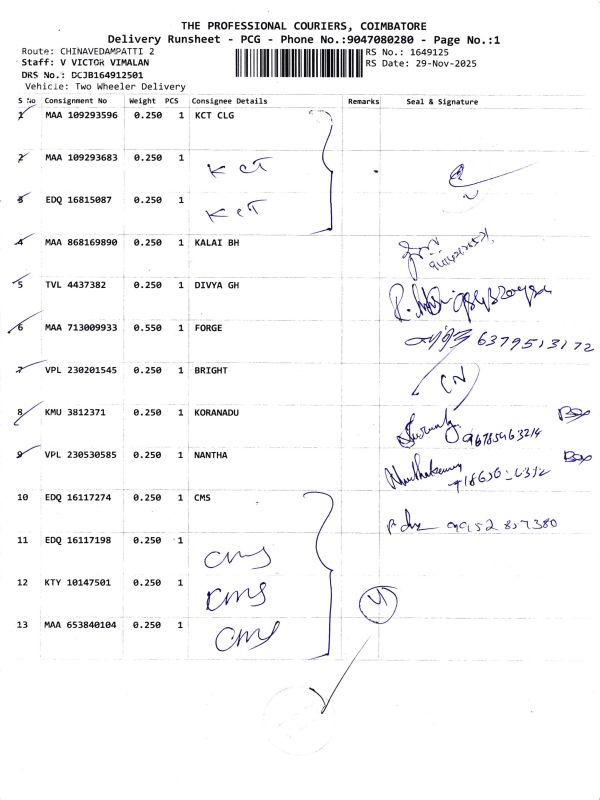 THE PROFESSIONAL COURIERS, COIMBATORE
Delivery Runsheet - PCG - Phone No.:9047080280 - Page No.:1
Route: CHINAVEDAMPATTI 2 RS No.: 1649125
Staff: V VICTOR VIMALAN RS Date: 29-Nov-2025
DRS No.: DCJB164912501
Vehicle: Two Wheeler Delivery
S No Consignment No Weight PCS Consignee Details Remarks Seal & Signature
1 MAA 109293596 0.250 1 KCT CLG
2 MAA 109293683 0.250 1 KCT
3 EDQ 16815087 0.250 1 KCT
4 MAA 868169890 0.250 1 KALAI BH
5 TVL 4437382 0.250 1 DIVYA GH
6 MAA 713009933 0.550 1 FORGE 6379513172
7 VPL 230201545 0.250 1 BRIGHT CN
8 KMU 3812371 0.250 1 KORANADU
9 VPL 230530585 0.250 1 NANTHA
10 EDQ 16117274 0.250 1 CMS
11 EDQ 16117198 0.250 1 CMS
12 KTY 10147501 0.250 1 CMS
13 MAA 653840104 0.250 1 CMS